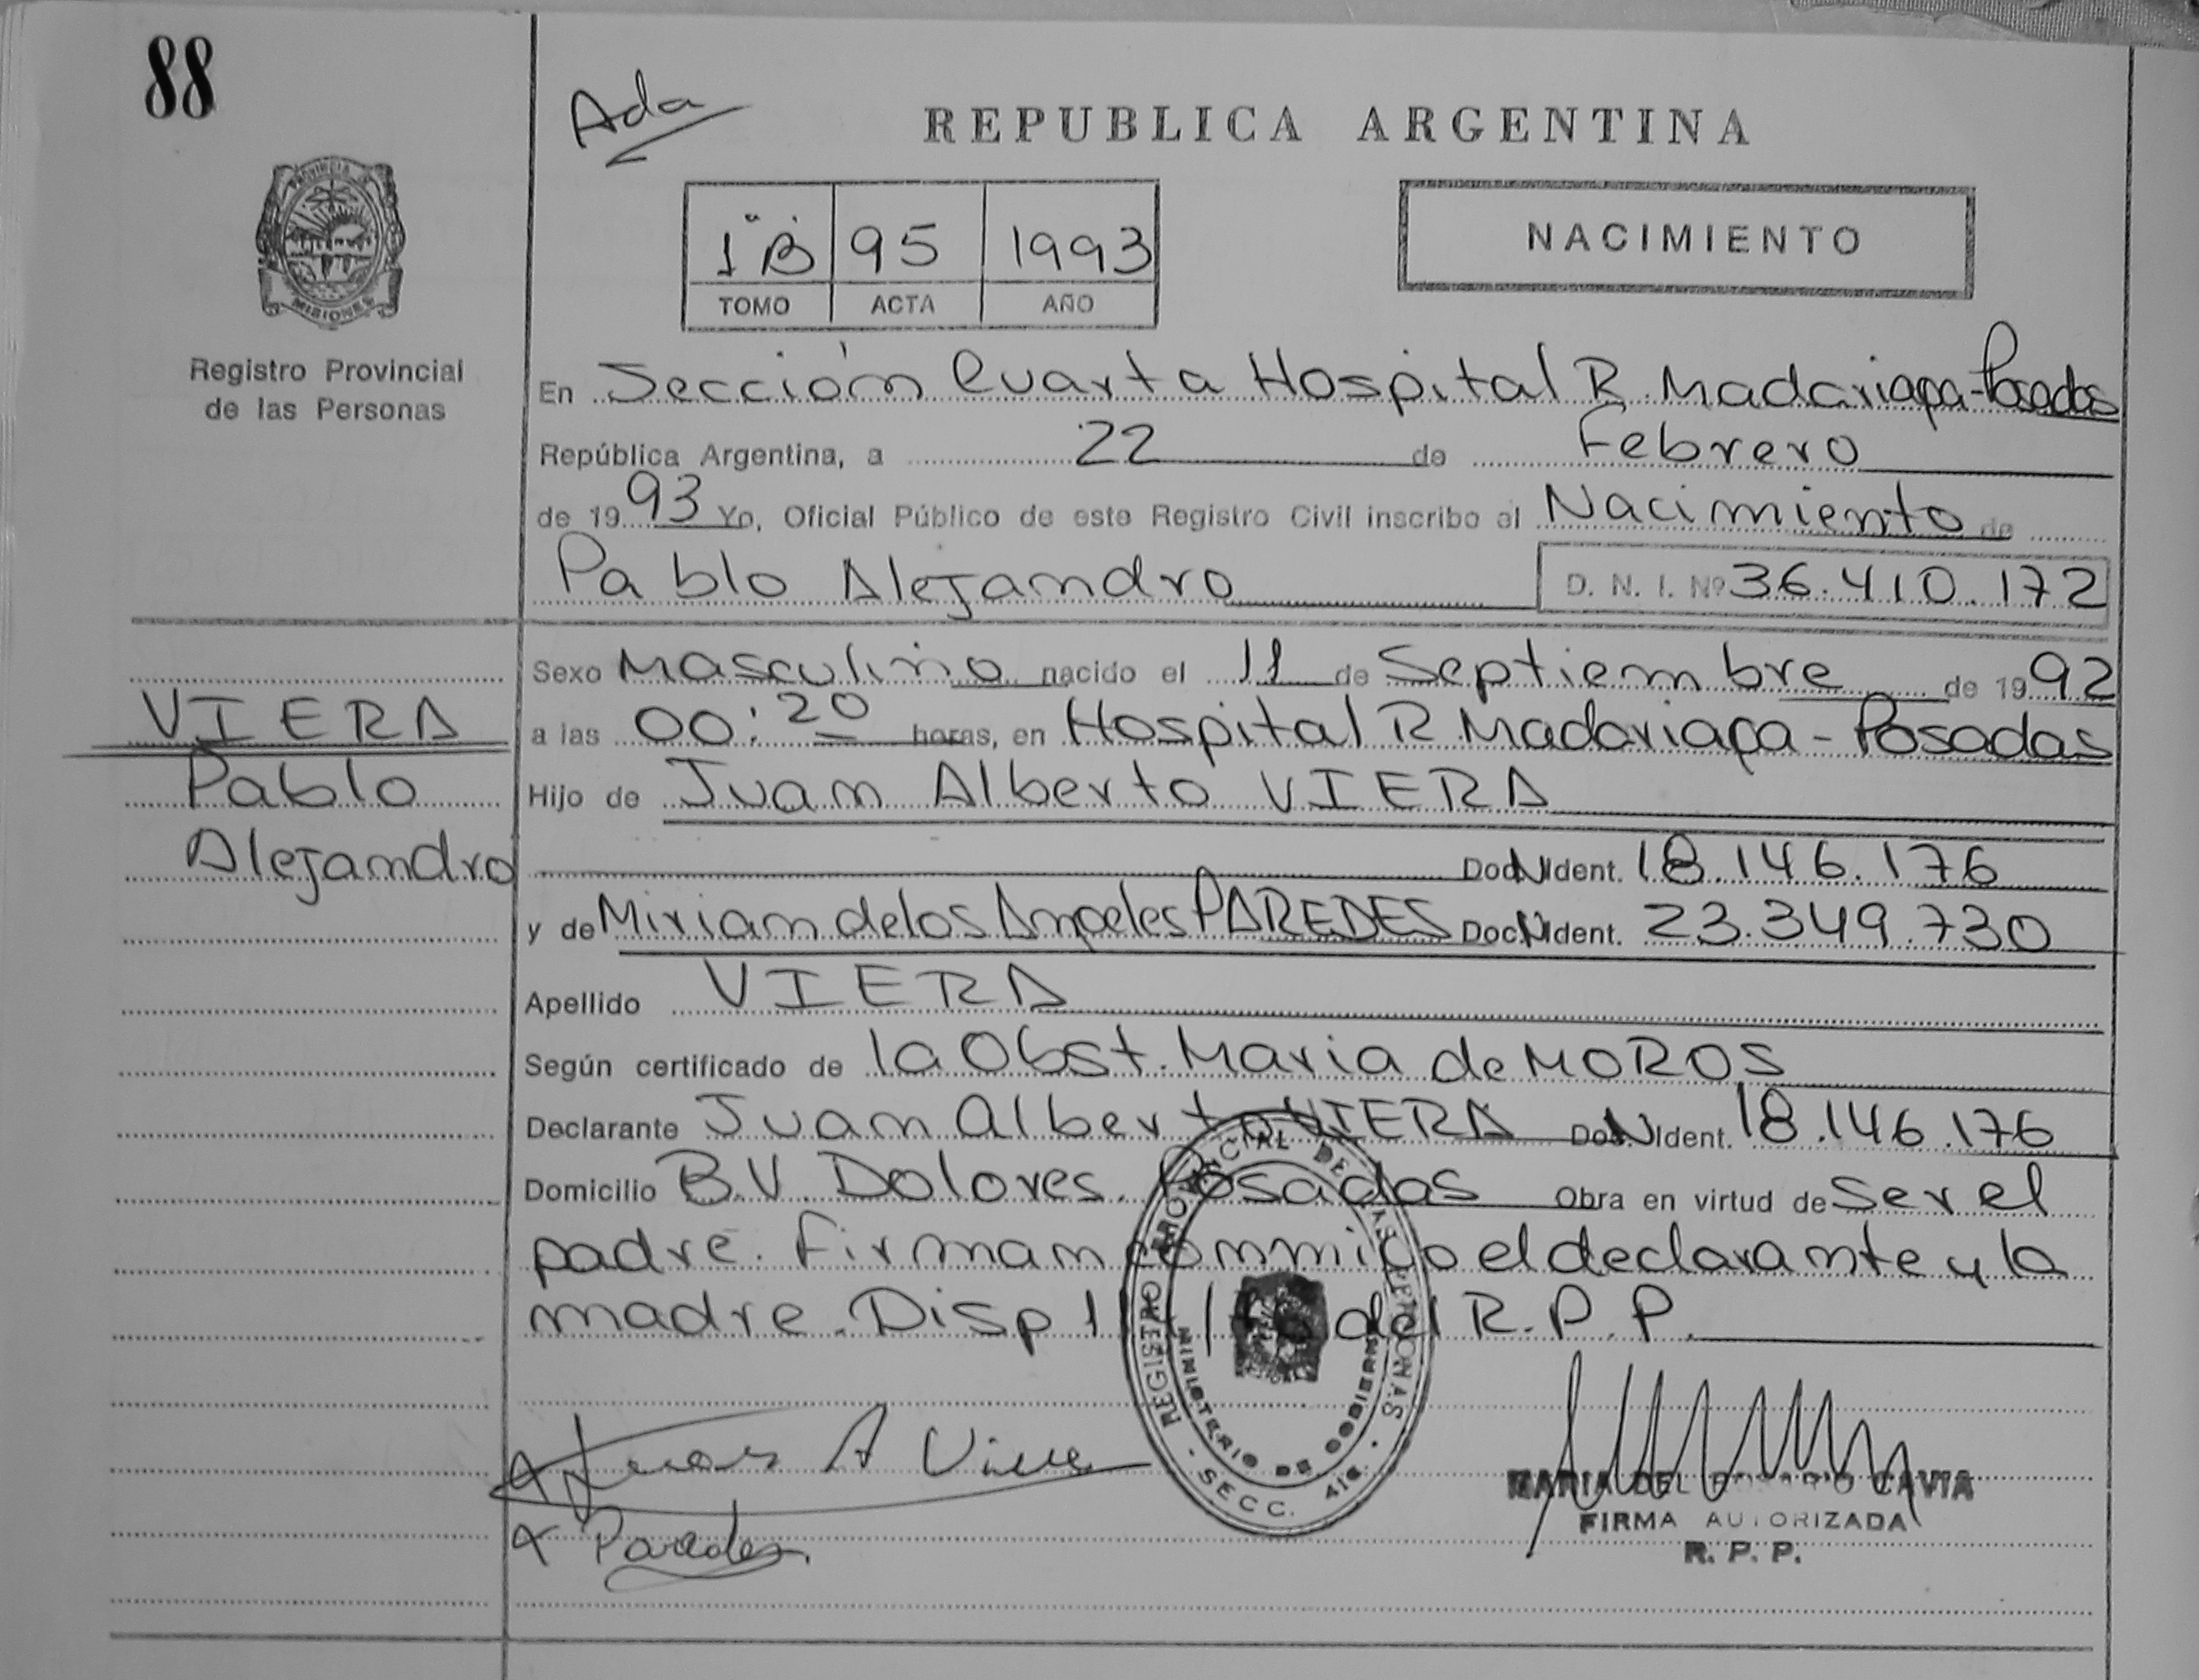 88
Ada
REPUBLICA ARGENTINA
1º B 95 1993
TOMO ACTA AÑO
NACIMIENTO
PROVINCIA DE
MISIONES
Registro Provincial
de las Personas
En Sección Cuarta Hospital R. Madariaga - Posadas
República Argentina, a 22 de Febrero
de 1993 Yo, Oficial Público de este Registro Civil inscribo el Nacimiento de
Pablo Alejandro D. N. I. Nº 36.410.172
Sexo Masculino nacido el 11 de Septiembre de 1992
VIERA
a las 00:20 horas, en Hospital R Madariaga - Posadas
Pablo
Hijo de Juan Alberto VIERA
Alejandro
Doc. N Ident. 18.146.176
y de Miriam de los Angeles PAREDES Doc. N Ident. 23.349.730
Apellido VIERA
Según certificado de la Obst. Maria de MOROS
Declarante Juan Alberto VIERA Doc. N Ident. 18.146.176
Domicilio B.V. Dolores. Posadas Obra en virtud de Ser el
padre. Firman conmigo el declarante y la
madre. Disp del R. P. P.
REGISTRO PROVINCIAL DE LAS PERSONAS
MINISTERIO DE GOBIERNO
- SECC. 4ta. -
Juan A Viera
Paredes
MARIA DEL ROSARIO CAVIA
FIRMA AUTORIZADA
R. P. P.